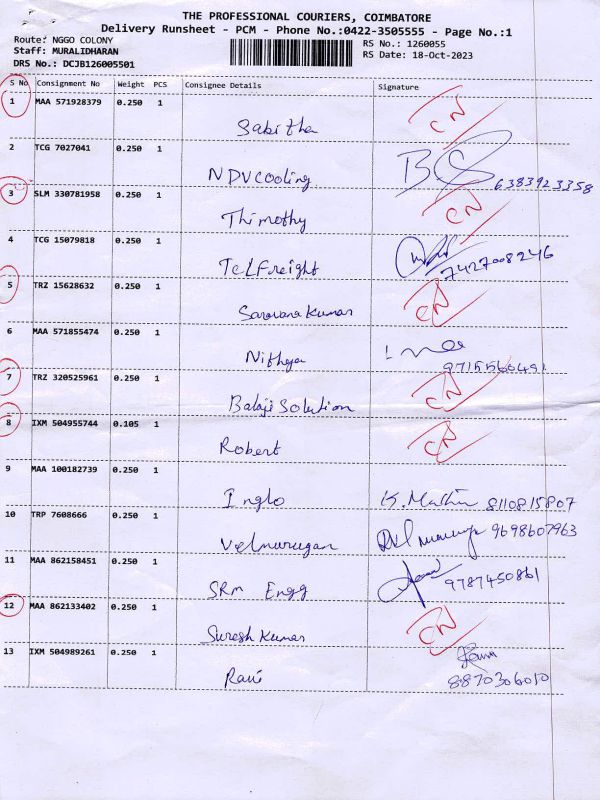 THE PROFESSIONAL COURIERS, COIMBATORE
Delivery Runsheet - PCM - Phone No.:0422-3505555 - Page No.:1
Route: NGGO COLONY RS No.: 1260055
Staff: MURALIDHARAN RS Date: 18-Oct-2023
DRS No.: DCJB126005501
S No Consignment No Weight PCS Consignee Details Signature
1 MAA 571928379 0.250 1 Sabitha CN
2 TCG 7027041 0.250 1 NDV Cooling 6383923358
3 SLM 330781958 0.250 1 Thimothy CN
4 TCG 15079818 0.250 1 TCL Freight 7427008246
5 TRZ 15628632 0.250 1 Saravana Kumar CN
6 MAA 571855474 0.250 1 Nithya 9715560491
7 TRZ 320525961 0.250 1 Balaji Solution CN
8 IXM 504955744 0.105 1 Robert CN
9 MAA 100182739 0.250 1 Inglo 8110815807
10 TRP 7608666 0.250 1 Velmurugan 9698607963
11 MAA 862158451 0.250 1 SRM Engg 9787450861
12 MAA 862133402 0.250 1 Suresh Kumar CN
13 IXM 504989261 0.250 1 Ravi 8870306010